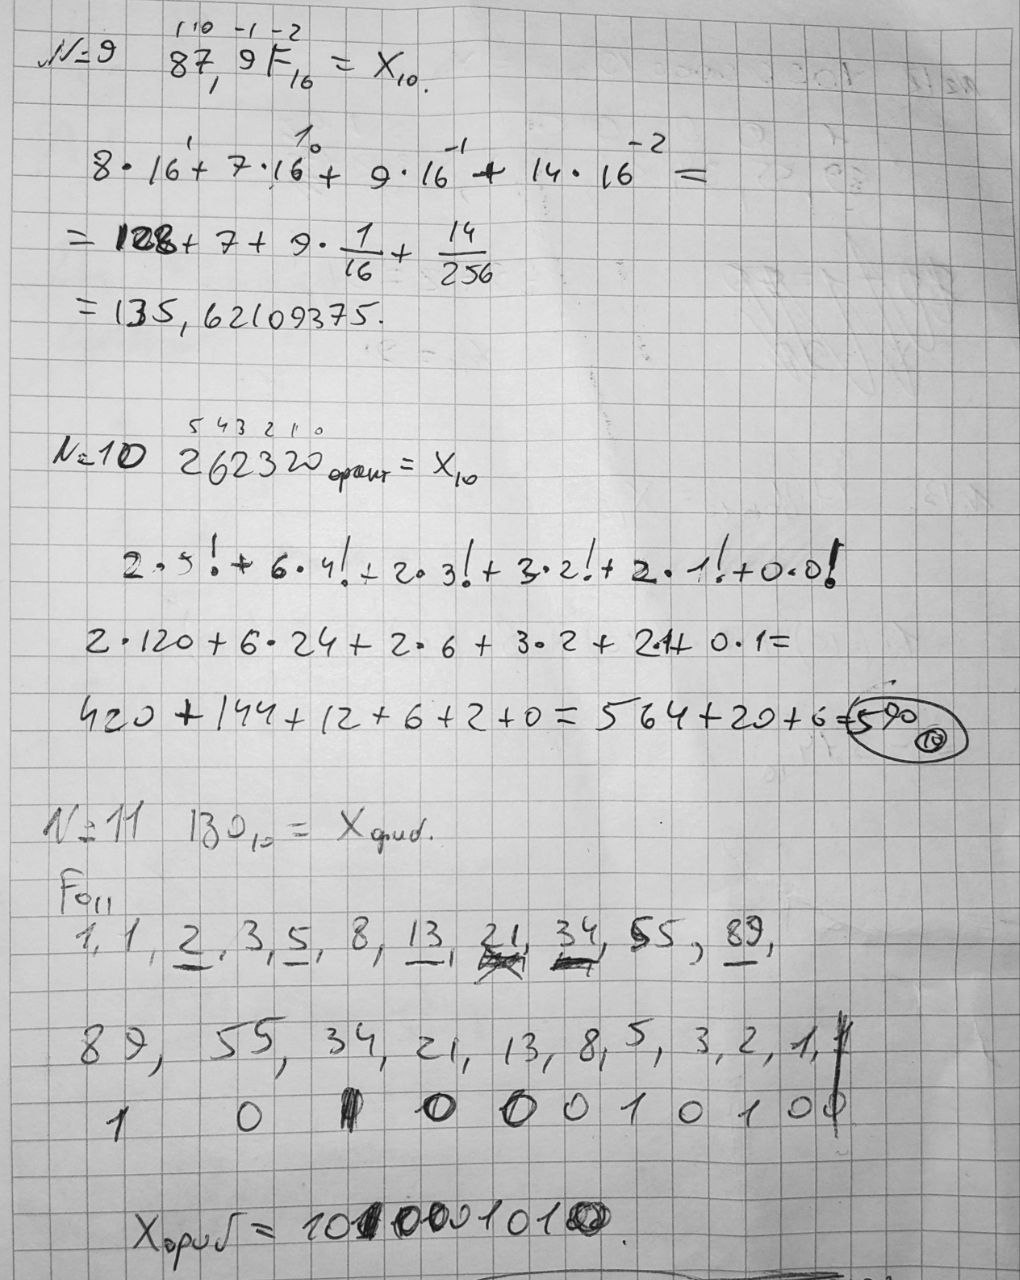 1 10 -1 -2
№9 87,9F₁₆ = X₁₀.
8·16¹ + 7·16⁰ + 9·16⁻¹ + 14·16⁻² =
= 128 + 7 + 9·1/16 + 14/256
= 135,62109375.
5 4 3 2 1 0
№10 262320факт = X₁₀
2·5! + 6·4! + 2·3! + 3·2! + 2·1! + 0·0!
2·120 + 6·24 + 2·6 + 3·2 + 2·1 + 0·1 =
420 + 144 + 12 + 6 + 2 + 0 = 564 + 20 + 6 = 590₁₀
№11 130₁₀ = Xфиб.
1, 1, 2, 3, 5, 8, 13, 21, 34, 55, 89,
89, 55, 34, 21, 13, 8, 5, 3, 2, 1, 1
1 0 1 0 0 0 1 0 1 0 0
Xфиб = 1010001010.